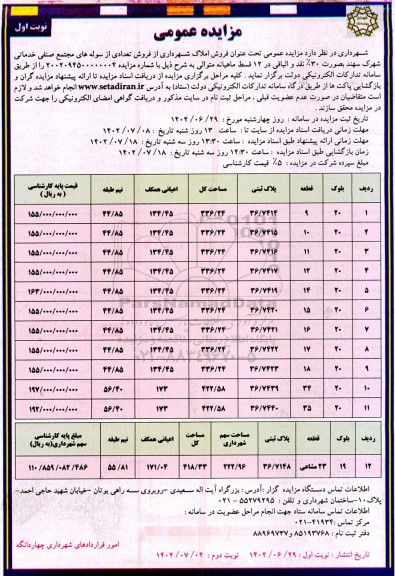 مزایده عمومی
نوبت اول
شهرداری در نظر دارد مزایده عمومی تحت عنوان فروش املاک شهرداری از فروش تعدادی از سوله های مجتمع صنفی خدماتی
شهرک سهند بصورت ۳۰٪ نقد و الباقی در ۱۲ قسط ماهیانه متوالی به شرح ذیل با شماره مزایده ۲۰۰۲۰۹۴۵۰۰۰۰۰۰۰۲ را از طریق
سامانه تدارکات الکترونیکی دولت برگزار نماید . کلیه مراحل برگزاری مزایده از دریافت اسناد مزایده تا ارائه پیشنهاد مزایده گران و
بازگشایی پاکت ها از طریق درگاه سامانه تدارکات الکترونیکی دولت (ستاد) به آدرس www.setadiran.ir انجام خواهد شد و لازم
است متقاضیان در صورت عدم عضویت قبلی ، مراحل ثبت نام در سایت مذکور و دریافت گواهی امضای الکترونیکی را جهت شرکت
در مزایده محقق سازند .
تاریخ ثبت مزایده در سامانه : روز چهارشنبه مورخ : ۱۴۰۲/۰۶/۲۹
مهلت زمانی دریافت اسناد مزایده از سایت تا : ساعت ۱۳ روز شنبه تاریخ : ۱۴۰۲/۰۷/۰۸
مهلت زمانی ارائه پیشنهاد طبق اسناد مزایده : ساعت ۱۳:۳۰ روز سه شنبه تاریخ : ۱۴۰۲/۰۷/۱۸
زمان بازگشایی طبق اسناد مزایده : ساعت ۱۴:۳۰ روز سه شنبه تاریخ : ۱۴۰۲/۰۷/۱۸
مبلغ سپرده شرکت در مزایده : ۵٪ قیمت کارشناسی
ردیف بلوک قطعه پلاک ثبتی مساحت کل اعیانی همکف نیم طبقه قیمت پایه کارشناسی (به ریال)
۱ ۲۰ ۹ ۳۶/۷۴۱۴ ۳۳۶/۲۴ ۱۳۴/۴۵ ۴۴/۸۵ ۱۵۵/۰۰۰/۰۰۰/۰۰۰
۲ ۲۰ ۱۰ ۳۶/۷۴۱۵ ۳۳۶/۲۴ ۱۳۴/۴۵ ۴۴/۸۵ ۱۵۵/۰۰۰/۰۰۰/۰۰۰
۳ ۲۰ ۱۱ ۳۶/۷۴۱۶ ۳۳۶/۲۴ ۱۳۴/۴۵ ۴۴/۸۵ ۱۵۵/۰۰۰/۰۰۰/۰۰۰
۴ ۲۰ ۱۲ ۳۶/۷۴۱۷ ۳۳۶/۲۴ ۱۳۴/۴۵ ۴۴/۸۵ ۱۵۵/۰۰۰/۰۰۰/۰۰۰
۵ ۲۰ ۱۴ ۳۶/۷۴۱۹ ۳۳۶/۲۴ ۱۳۴/۴۵ ۴۴/۸۵ ۱۶۳/۰۰۰/۰۰۰/۰۰۰
۶ ۲۰ ۱۵ ۳۶/۷۴۲۰ ۳۳۶/۲۴ ۱۳۴/۴۵ ۴۴/۸۵ ۱۵۵/۰۰۰/۰۰۰/۰۰۰
۷ ۲۰ ۱۶ ۳۶/۷۴۲۱ ۳۳۶/۲۴ ۱۳۴/۴۵ ۴۴/۸۵ ۱۵۵/۰۰۰/۰۰۰/۰۰۰
۸ ۲۰ ۱۷ ۳۶/۷۴۲۲ ۳۳۶/۲۴ ۱۳۴/۴۵ ۴۴/۸۵ ۱۵۵/۰۰۰/۰۰۰/۰۰۰
۹ ۲۰ ۱۸ ۳۶/۷۴۲۳ ۳۳۶/۲۴ ۱۳۴/۴۵ ۴۴/۸۵ ۱۵۵/۰۰۰/۰۰۰/۰۰۰
۱۰ ۲۰ ۳۴ ۳۶/۷۴۳۹ ۴۲۲/۵۸ ۱۷۳ ۵۶/۴۰ ۱۹۷/۰۰۰/۰۰۰/۰۰۰
۱۱ ۲۰ ۳۵ ۳۶/۷۴۴۰ ۴۲۲/۵۸ ۱۷۳ ۵۶/۴۰ ۱۹۲/۰۰۰/۰۰۰/۰۰۰
ردیف بلوک قطعه پلاک ثبتی مساحت سهم شهرداری مساحت کل اعیانی همکف نیم طبقه مبلغ پایه کارشناسی سهم شهرداری(به ریال)
۱۲ ۱۹ ۲۳مشاعی ۳۶/۷۱۴۸ ۲۲۲/۹۶ ۴۱۸/۳۳ ۱۷۱/۰۴ ۵۵/۸۱ ۱۱۰/۸۵۹/۰۸۲/۴۸۶
اطلاعات تماس دستگاه مزایده گزار :آدرس: بزرگراه آیت اله سعیدی –روبروی سه راهی بوتان –خیابان شهید حاجی احمد–
پلاک۱۰–ساختمان شهرداری و تلفن : ۵۵۲۷۹۲۹۵ – ۰۲۱
اطلاعات تماس سامانه ستاد جهت انجام مراحل عضویت در سامانه :
مرکز تماس :۴۱۹۳۴–۰۲۱
دفتر ثبت نام : ۸۵۱۹۳۷۶۸ و ۸۸۹۶۹۷۳۷
امور قراردادهای شهرداری چهاردانگه
تاریخ انتشار : نوبت اول : ۲۹ / ۰۶ / ۱۴۰۲ نوبت دوم : ۰۲ / ۰۷ / ۱۴۰۲